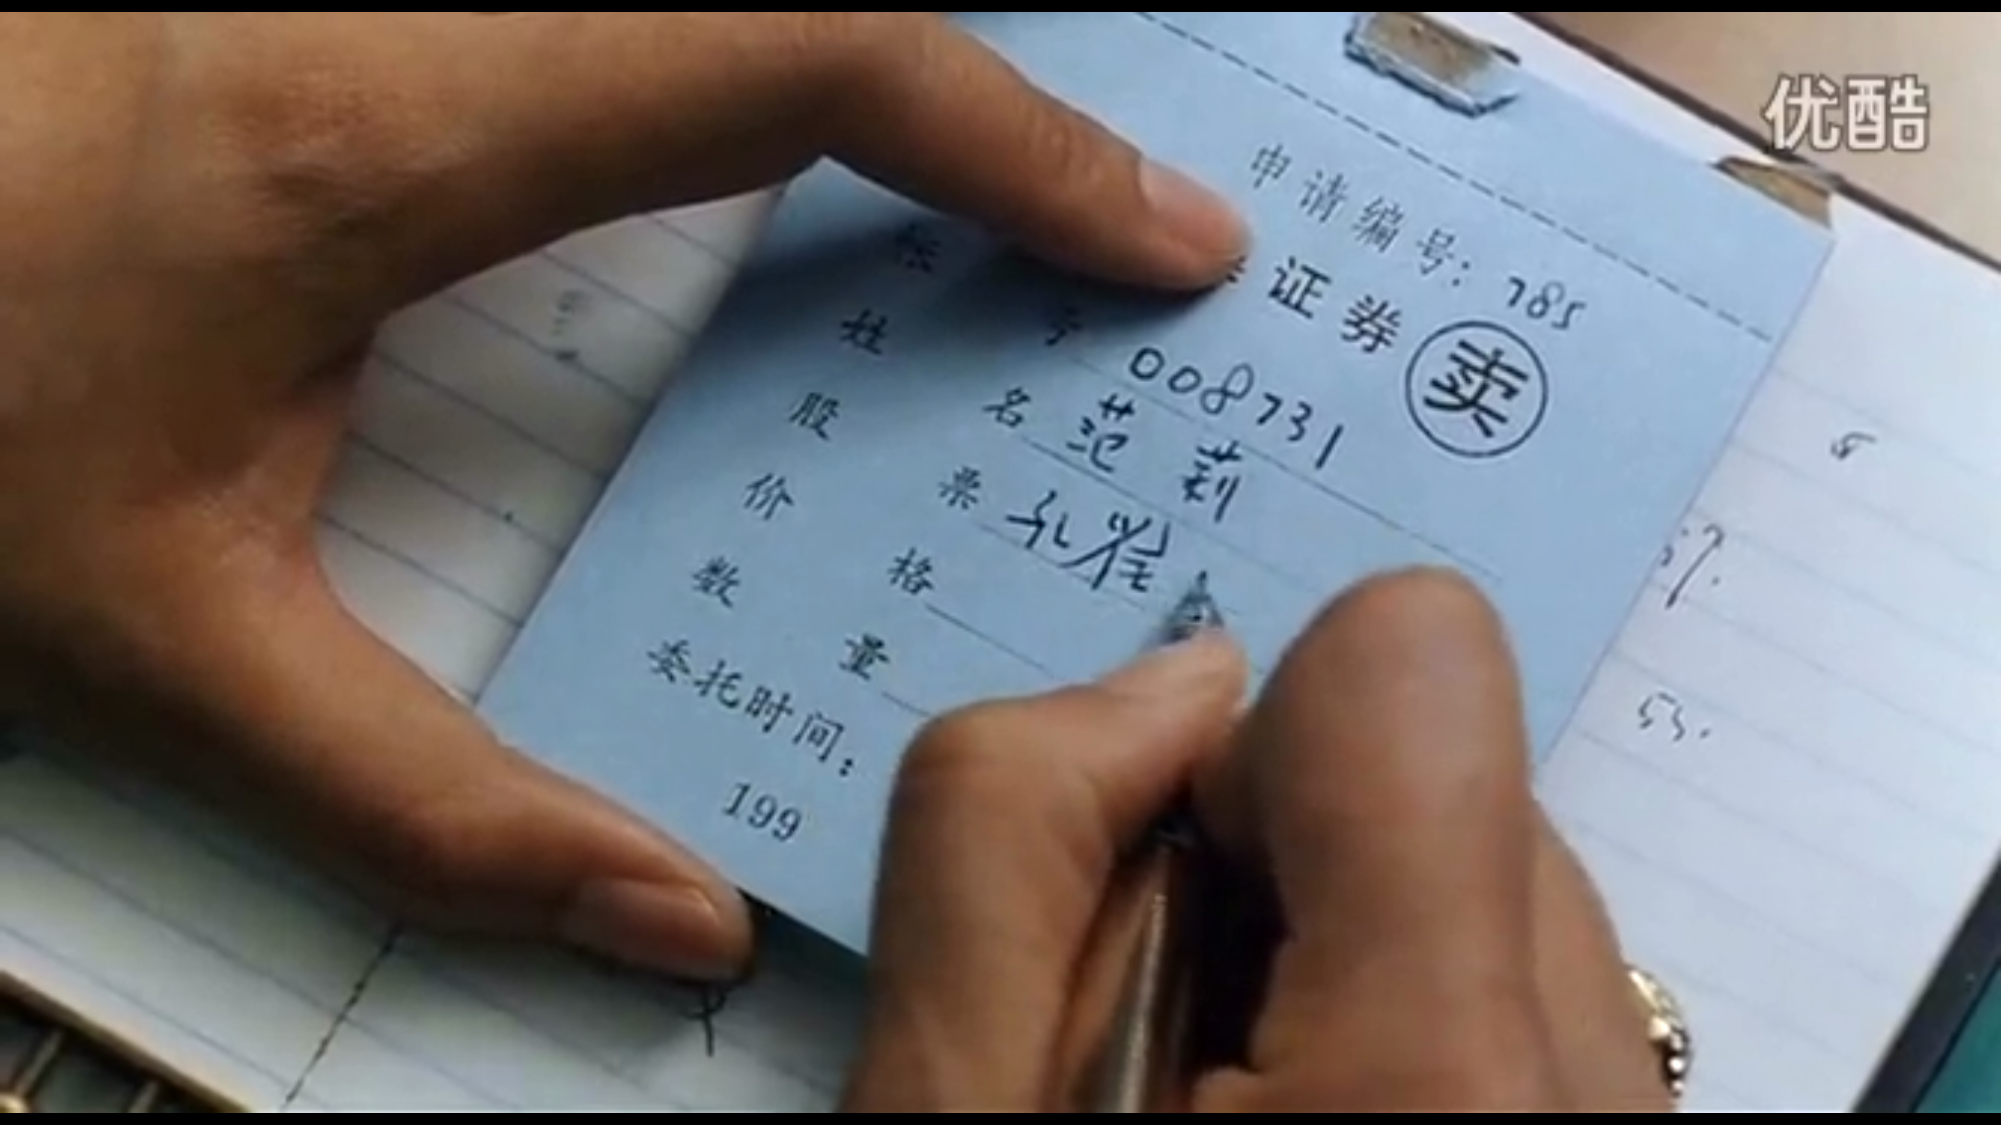 优酷
申请编号：785
证券 卖
帐 号 008731
姓 名 范莉
股 票 孔雀
价 格
数 量
委托时间：
199
53.